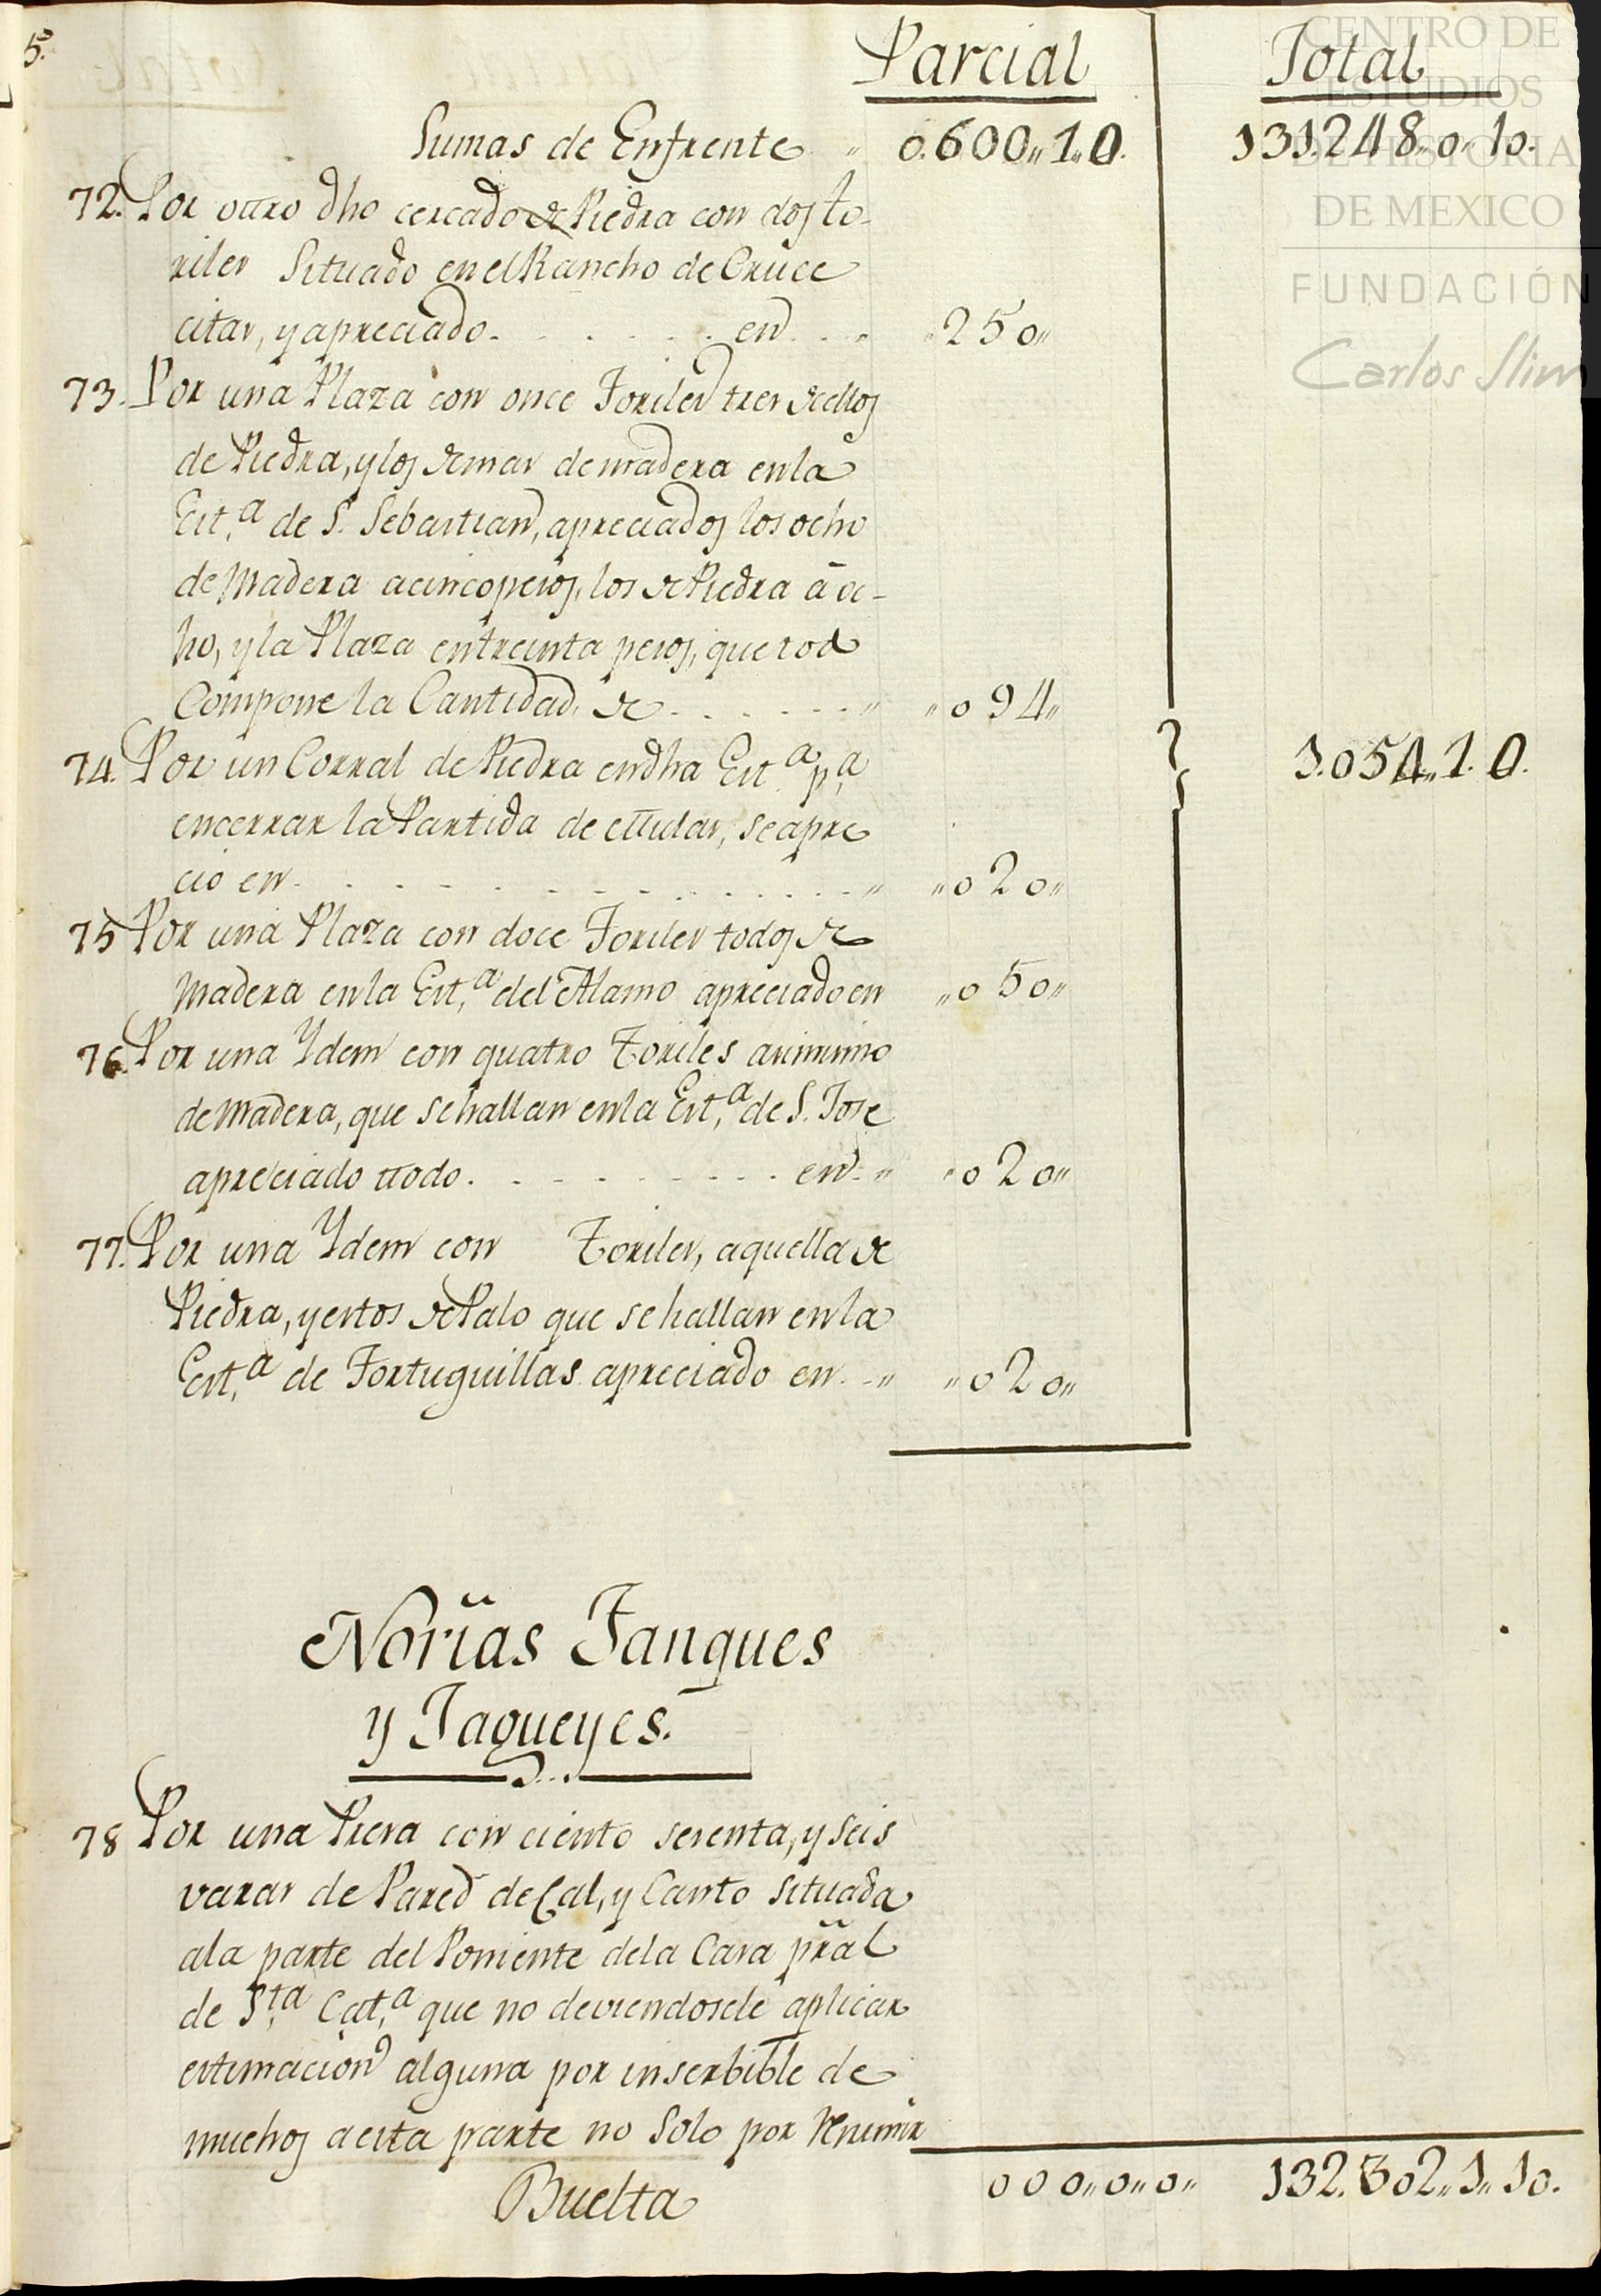 5º
Parcial Total
Sumas de Enfrente „ 0.600„1„0. 131.248„0„10.
72. Por otro dho cercado de Piedra con dos to-
riles Situado en el Rancho de Cruce
citas, y apreciado. . . . . . en . . „ „250„
73. Por una Plaza con once Toriles tres de ellos
de Piedra, y los demas de madera en la
Est.ª de S. Sebastian, apreciados los ocho
de Madera a cinco pesos, los de Piedra á oc-
ho, y la Plaza en treinta pesos, que tod
Compone la Cantidad de . . . . . . „ „094„
1.054„1.0.
74. Por un Corral de Piedra en dha Est.ª p.ª
encerrar la Partida de Mulas, se apre
ció en . . . . . . . . . . . . . . . „ „020„
75 Por una Plaza con doce Toriles todos de
Madera en la Est.ª del Alamo apreciado en „050„
76. Por una Ydem con quatro Toriles asimismo
de Madera, que se hallan en la Est.ª de S. Jose
apreciado todo. . . . . . . . . en. „ „020„
77. Por una Ydem con Toriles, aquella de
Piedra, y estos de Palo que se hallan en la
Est.ª de Tortuguillas apreciado en . . „ „020„
Norias Tanques
y Jagueyes.
78 Por una Presa con ciento sesenta, y seis
varas de Pared de Cal, y Canto situada
a la parte del Poniente de la Casa pral
de S.ta Cat.ª que no deviendosele aplicar
estimacion alguna por inserbible de
muchos a esta parte no Solo por
Buelta 000„0„0„ 132.302„1„10.
CENTRO DE
ESTUDIOS
DE HISTORIA
DE MEXICO
FUNDACIÓN
Carlos Slim